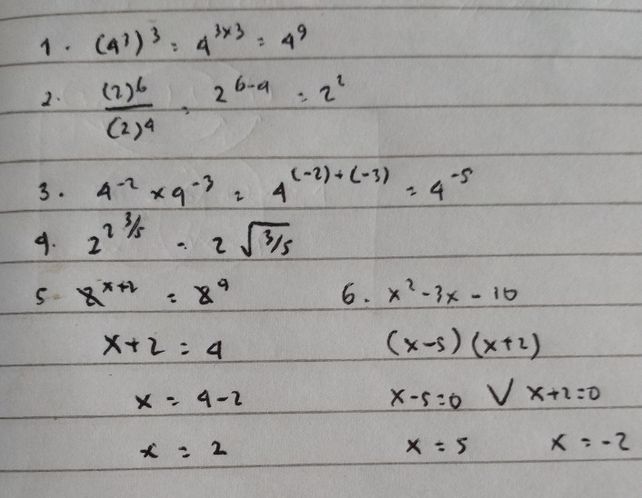 1. (4³)³ = 4^{3×3} = 4⁹
2. (2)⁶/(2)⁴ = 2^{6-4} = 2²
3. 4⁻² × 4⁻³ = 4^{(-2)+(-3)} = 4⁻⁵
4. 2^{2 3/5} = 2 √(3/5)
5. 8^{x+2} = 8⁴
x+2 = 4
x = 4-2
x = 2
6. x²-3x-10
(x-5)(x+2)
x-5=0 ∨ x+2=0
x = 5 x = -2